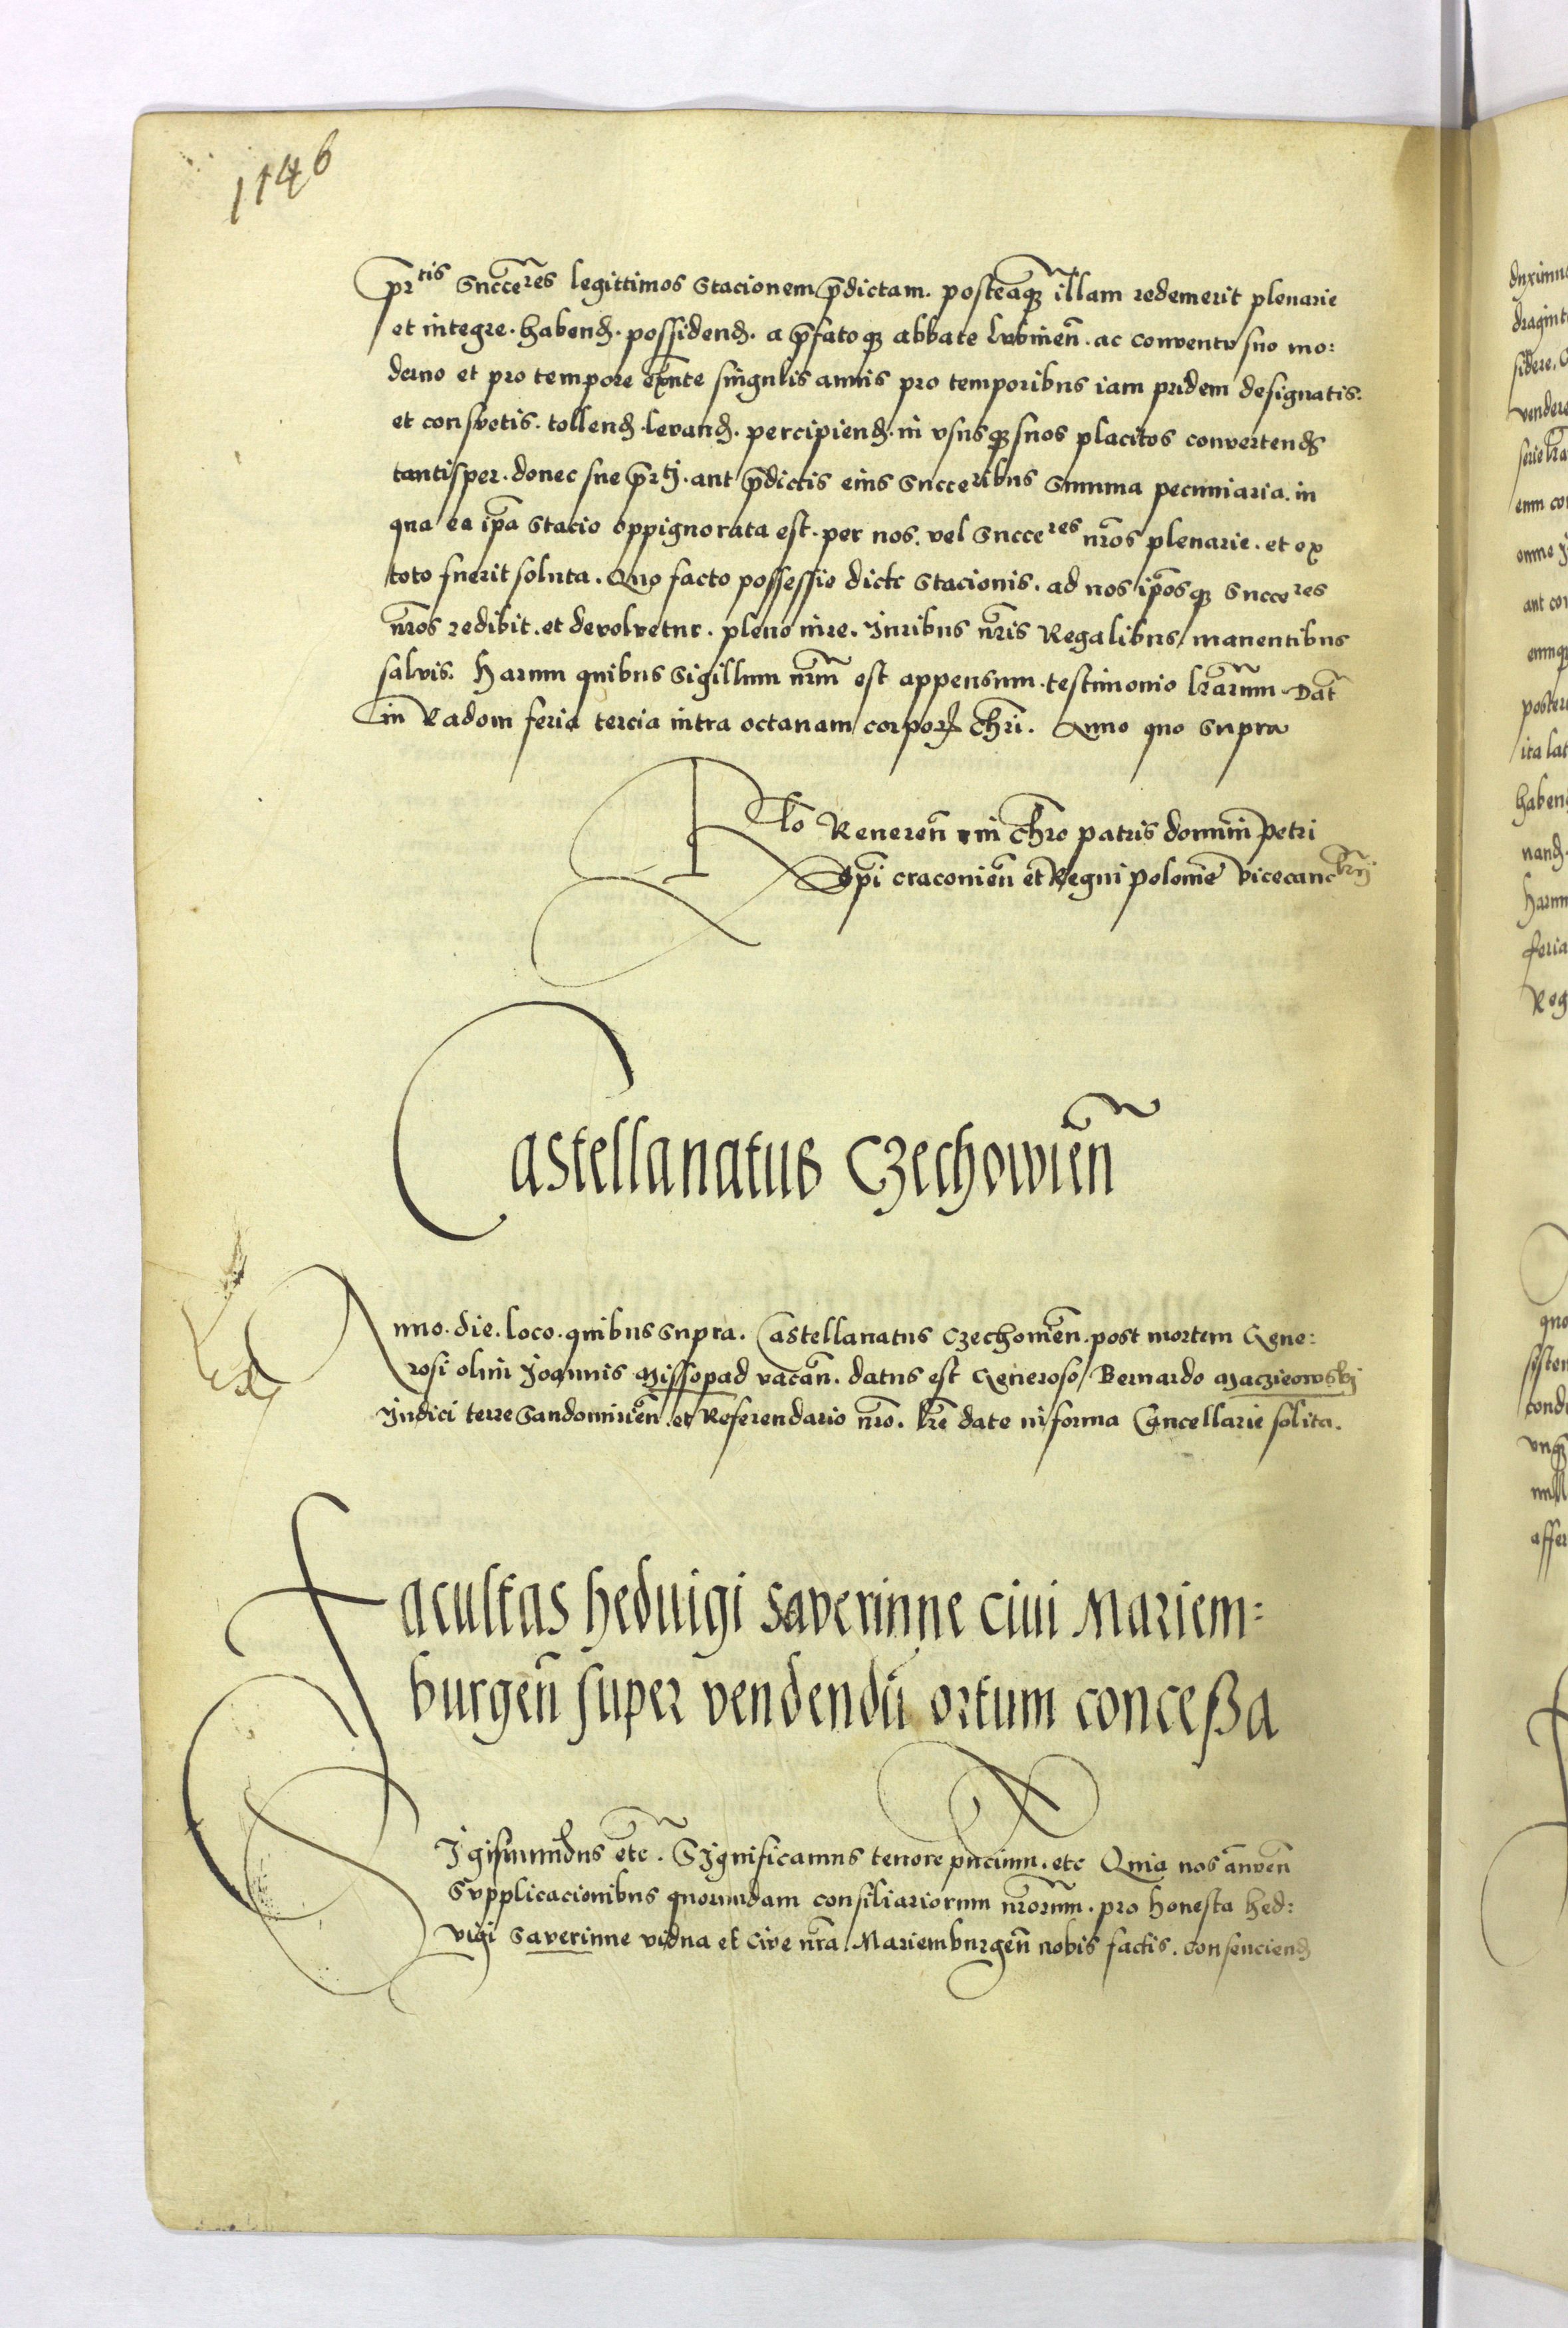 1146
pr̄tis Succe͂res legittimos Stacionem p̄dictam. posteaq̃ꝫ illam redemerit plenarie
et integre. habenđ. possidenđ. a p̄fatoqꝫ abbate Lubinen̄. ac conventu suo mo:
derno et pro tempore exn̄te singulis annis pro temporibus iam pridem designatis.
et consvetis. tollenđ. levanđ. percipienđ. in vsusqꝫ suos placitos convertenđ
tantisper. donec sue p̄rtj. aut p̄dictis eius Succeribus Summa pecuniaria. in
qua ea ip̄a Stacio oppignorata est. per nos. vel Succeres nr̄os plenarie. et ex
toto fuerit soluta. Quo facto possessio dicte Stacionis. ad nos ip̄osqꝫ Succeres
nr̄os redibit. et devolvetur. pleno iure. Iuribus nr̄is Regalibus manentibus
salvis. Harum quibus Sigillum nr̄m est appensum. testimonio lr̄arum Dat̄
in Radom feria tercia intra octauam corporꝭ chr̄i. Anno quo Supra
Rl̄o Reueren̄ in chr̄o patris domini petri
Ep̄i cracovien̄ et Regni polonie Vicecancrij
Castellanatus Czechowien̄
Anno. die. loco. quibus Supra. Castellanatus Czechowien̄. post mortem Gene:
rosi olim Joannis Missopad vacan̄. datus est Generoso Bernardo Maczieowskj
Judici terre Sandomirien̄. et Referendario nr̄o. lr̄e date in forma Cancellarie solita.
Facultas Heduigi Saverinne ciui Mariem=
burgen̄ super vendendū ortum conceßa
SIgismundus etc̄. SIgnificamus tenore pn̄cium. etc Quia nos an̄uen̄
Svpplicacionibus quorundam consiliariorum nr̄orum. pro honesta Hed:
vigi Saverinne vidua et cive nr̄a Mariemburgen̄ nobis factis. consencienđ